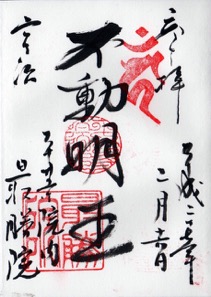 奉拝
平成二十七年
二月十一日
不動明王
宇治
平等院内
最勝院